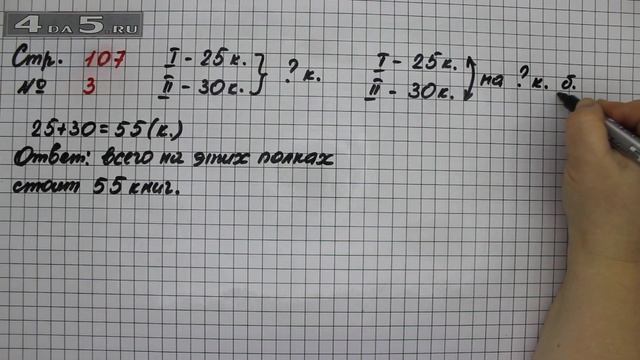 4DA5.RU
Стр. 107
№ 3
I - 25 к.
II - 30 к.
? к.
25+30=55(к.)
Ответ: всего на этих полках
стоит 55 книг.
I - 25 к.
II - 30 к.
на ? к. б.